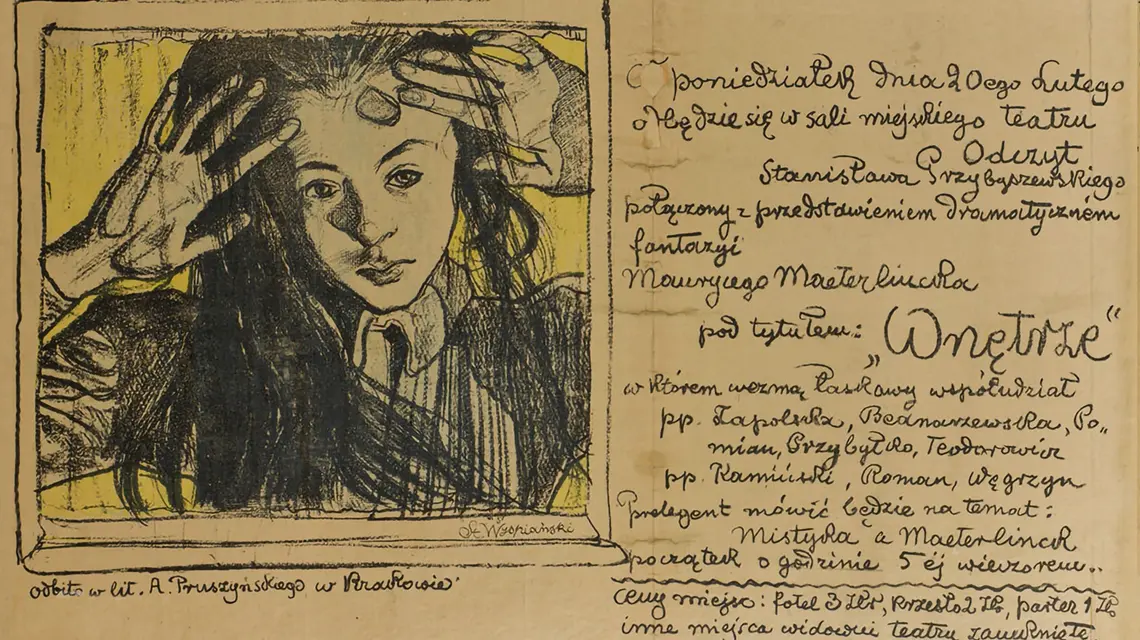 St Wyspiański
odbito w lit. A. Pruszyńskiego w Krakowie
W poniedziałek dnia 20ego Lutego
odbędzie się w sali miejskiego teatru
Odczyt
Stanisława Przybyszewskiego
połączony z przedstawieniem dramatycznem
fantazyi
Maurycego Maeterlincka
pod tytułem: „Wnętrze“
w którem wezmą łaskawy współudział
pp. Zapolska, Bednarzewska, Po„
mian, Przybyłko, Teodorowicz
pp. Kamiński, Roman, Węgrzyn
Prelegent mówić będzie na temat:
Mistyka a Maeterlinck
początek o godzinie 5ej wieczorem..
Ceny miejsc: fotel 3 Złr, krzesło 2 Zł, parter 1 Zł
inne miejsca widowni teatru zamknięte